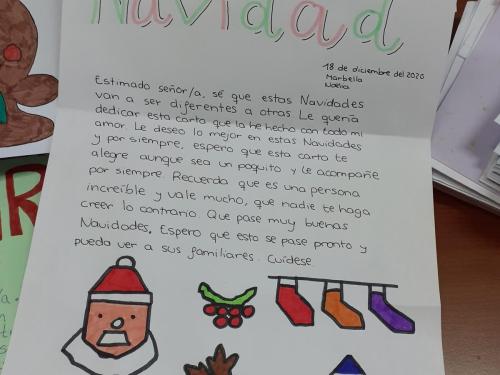 Navidad
18 de diciembre del 2020
Marbella
Noelia
Estimado señor/a, sé que estas Navidades
van a ser diferentes a otras Le quería
dedicar esta carta que la he hecho con todo mi
amor Le deseo lo mejor en estas Navidades
y por siempre, espero que esta carta te
alegre aunque sea un poquito y le acompañe
por siempre. Recuerda que es una persona
increíble y vale mucho, que nadie te haga
creer lo contrario. Que pase muy buenas
Navidades. Espero que esto se pase pronto y
pueda ver a sus familiares. Cuídese.